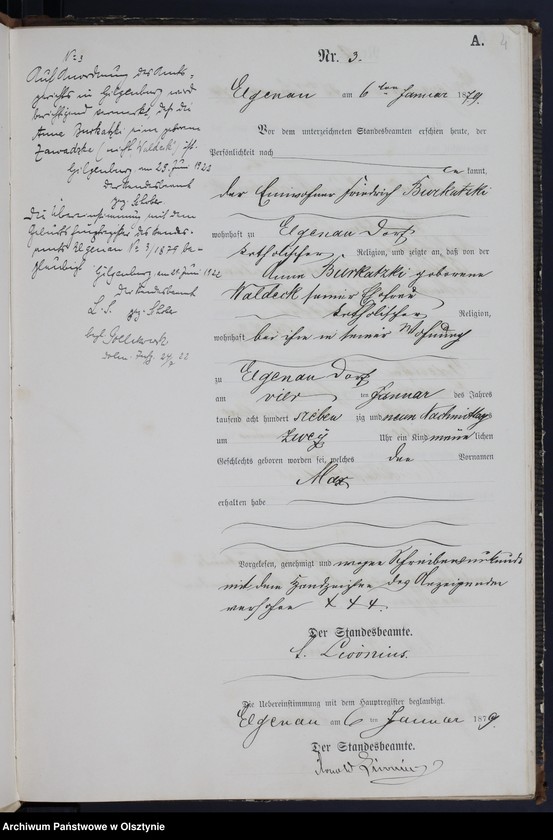 A.
4
Nr. 3.
Elgenau am 6ten Januar 1879.
Vor dem unterzeichneten Standesbeamten erschien heute, der
Persönlichkeit nach
kannt,
der Einwohner Friedrich Burkatzki
wohnhaft zu Elgenau Dorf
katholischer Religion, und zeigte an, daß von der
Anna Burkatzki geborene
Waldeck seiner Ehefrau
katholischer Religion,
wohnhaft bei ihm in seiner Wohnung
zu Elgenau Dorf
am vier ten Januar des Jahres
tausend acht hundert sieben zig und neun Nachmittag
um zwey Uhr ein Kind männlichen
Geschlechts geboren worden sei, welches den Vornamen
Max
erhalten habe
Vorgelesen, genehmigt und wegen Schreibensunkunde
mit dem Handzeichen des Anzeigenden
versehen + + +.
Der Standesbeamte.
Die Uebereinstimmung mit dem Hauptregister beglaubigt.
Elgenau am 6 ten Januar 1879.
Der Standesbeamte.
No 3
Auf Anordnung des Amts-
gerichts in Gilgenburg wird
berichtigend vermerkt, daß die
Anna Burkatzki eine geborene
Zawadzki, nicht Waldeck, ist.
Gilgenburg am 23. Juni 1922
Der Standesbeamte
gez.
Die Übereinstimmung mit dem
Geburtshauptregister des Standes-
amts Elgenau No 3/1879 be-
glaubigt
Gilgenburg am 1922
Der Standesbeamte
L. S. gez.
Archiwum Państwowe w Olsztynie